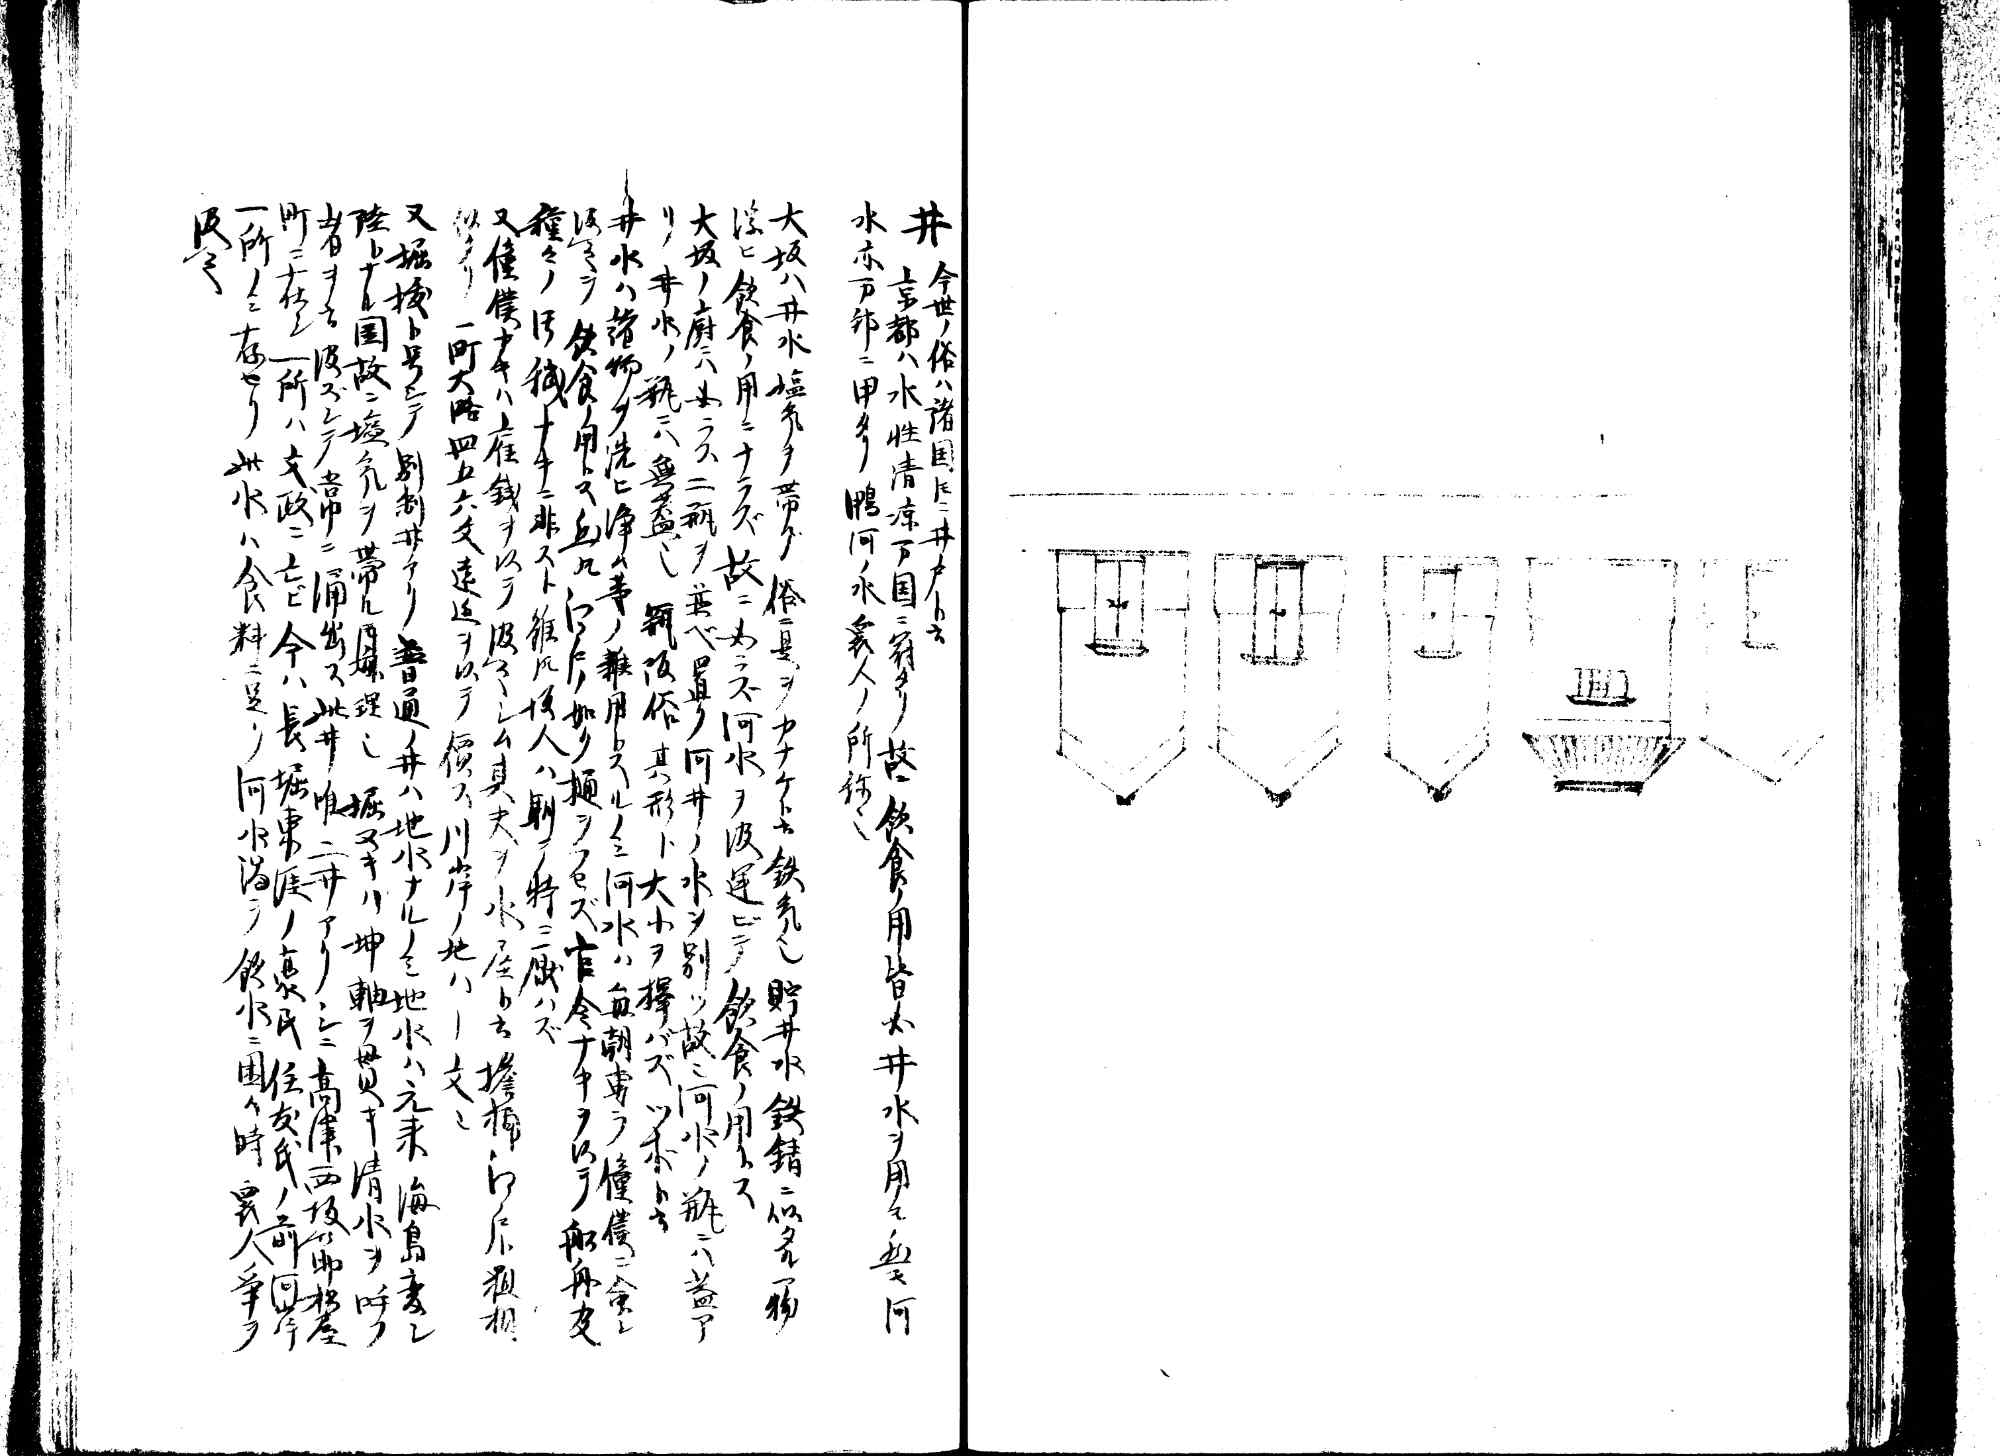 井 今世ノ俗ハ諸国トモニ井戸ト云
京都ハ水性清凉万国ニ冠タリ故ニ飲食ノ用皆必井水ヲ用フ 河
水亦万邦ニ甲タリ鴨河ノ水衆人ノ所称也
大坂ハ井水塩気ヲ帯ブ俗ニ是ヲカナケト云鉄気也貯井水鉄錆ニ似タル物
浮ヒ飲食ノ用ニナラズ故ニ必ラズ河水ヲ汲運ビテ飲食ノ用トス
大坂ノ廚ニハ必ラス二瓶ヲ並ベ置ク河井ノ水ヲ別ツ故ニ河水ノ瓶ニハ蓋ア
リ井水ノ瓶ニハ無蓋也 瓶坂俗其形ト大小ヲ擇バズツボト云
井水ハ諸物ヲ洗ヒ浄ム等ノ雑用トスルノミ河水ハ毎朝専ラ僮僕ニ命シ
汲セテ飲食ノ用トス 江戸ノ如ク樋ヲフセズ官令ナキヲ以テ船舟
種々ノ汚穢ナキニ非スト雖凡坂人ハ馴テ特ニ厭ハズ
又僮僕ナキハ雇銭ヲ以テ汲セシム其夫ヲ水屋ト云擔桶江戸ト粗相
似タリ 一町大略四五六文遠近ヲ以テ價ス川岸ノ地ハ一文也
又堀抜ト号シテ別制井アリ普通ノ井ハ地水ナルノミ地水ハ元来海島変シ
陸トナル国故ニ塩気ヲ帯ル 理也堀ヌキハ坤軸ヲ貫キ清水ヲ呼フ
者ヲ云汲ズシテ常ニ涌出ス此井唯二井アリシニ高津西坂
町ニ在シ一所ハ文政ニ亡ビ今ハ長堀東涯ノ豪民住友氏ノ前河岸
一所ノミ存セリ此水ハ食料ニ足リ河水濁テ飲水ニ困ム時衆人争ヲ
汲之